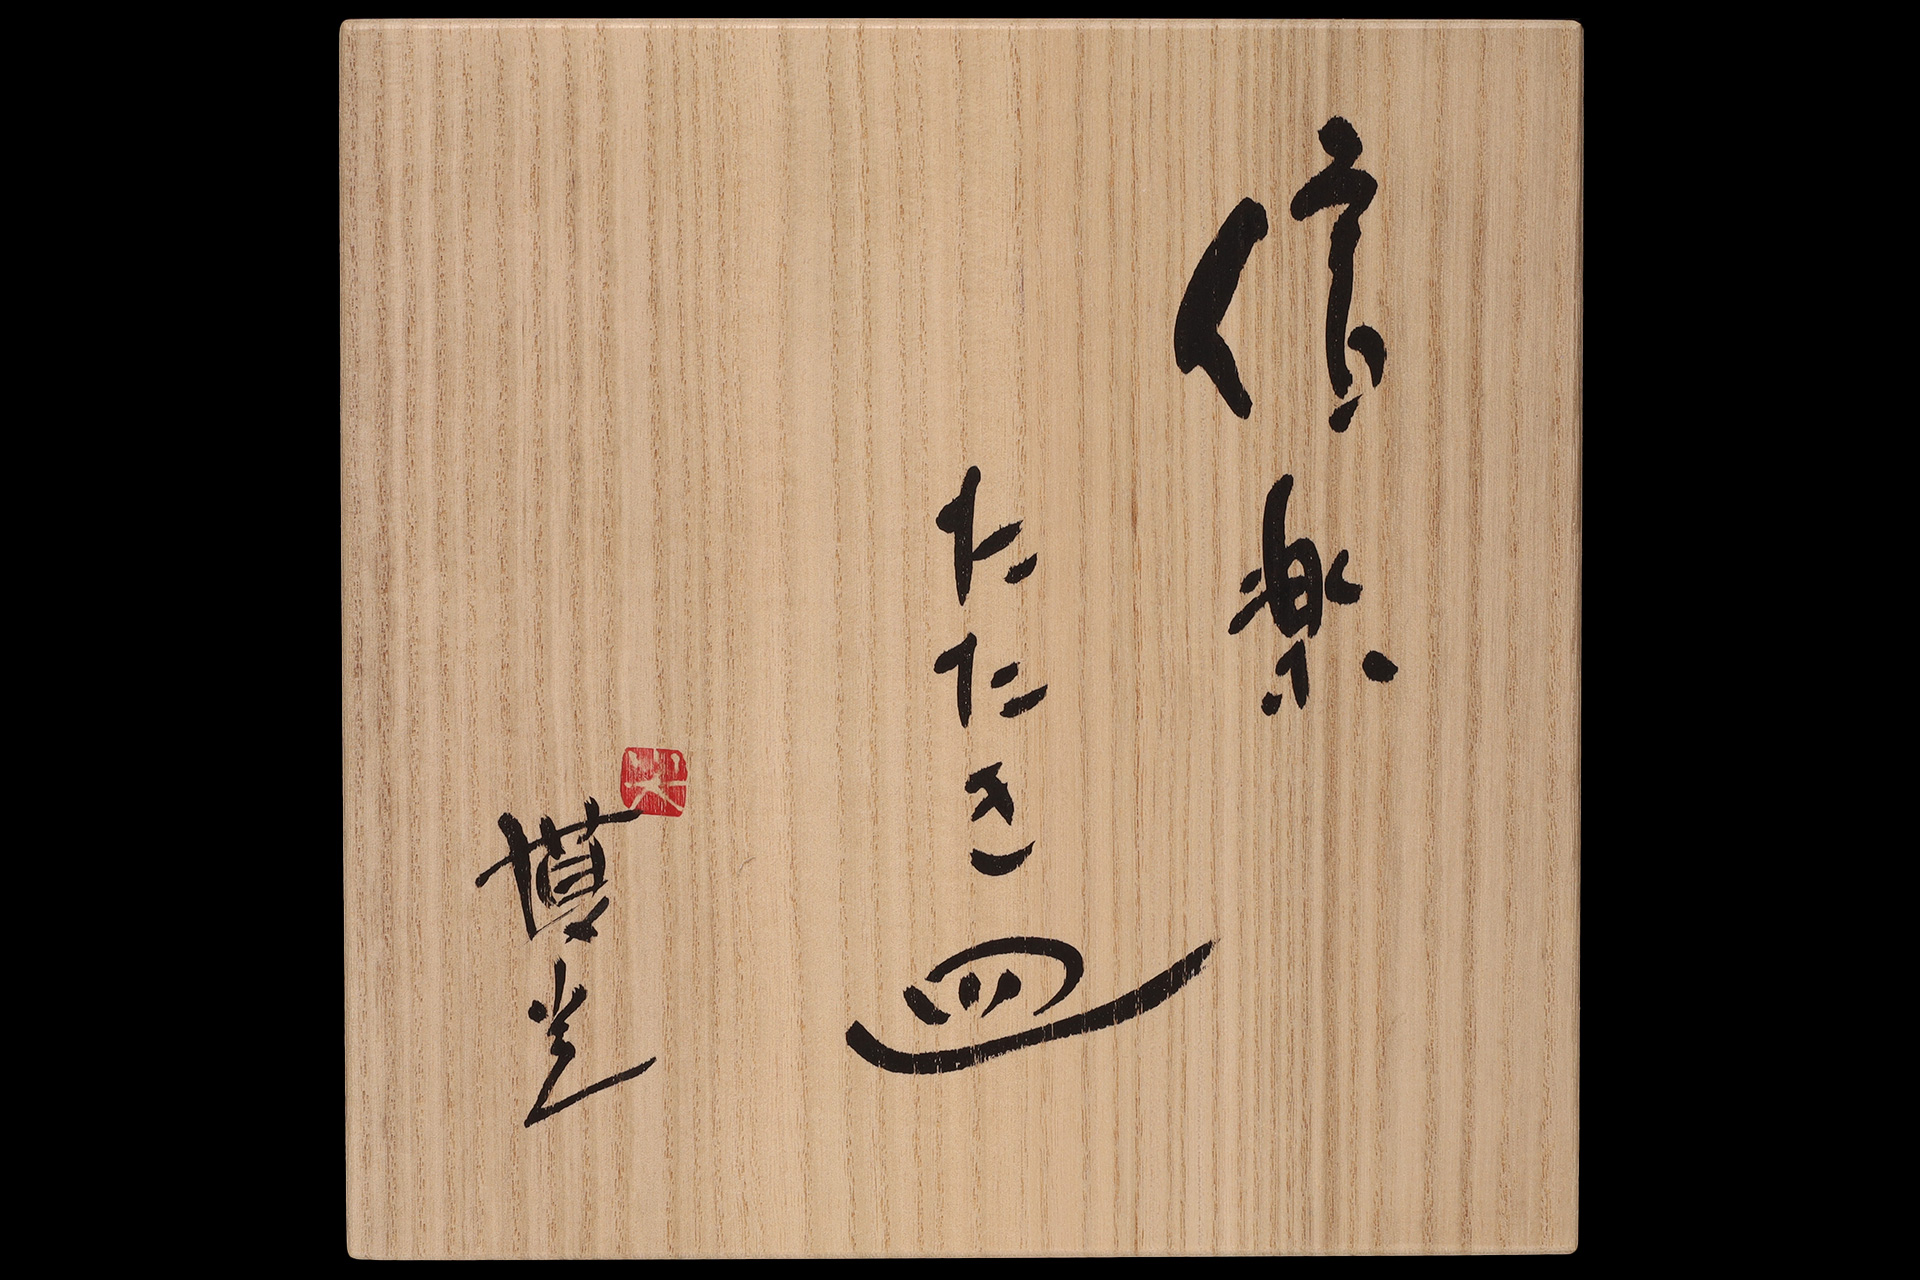 信楽
たたき皿
博光